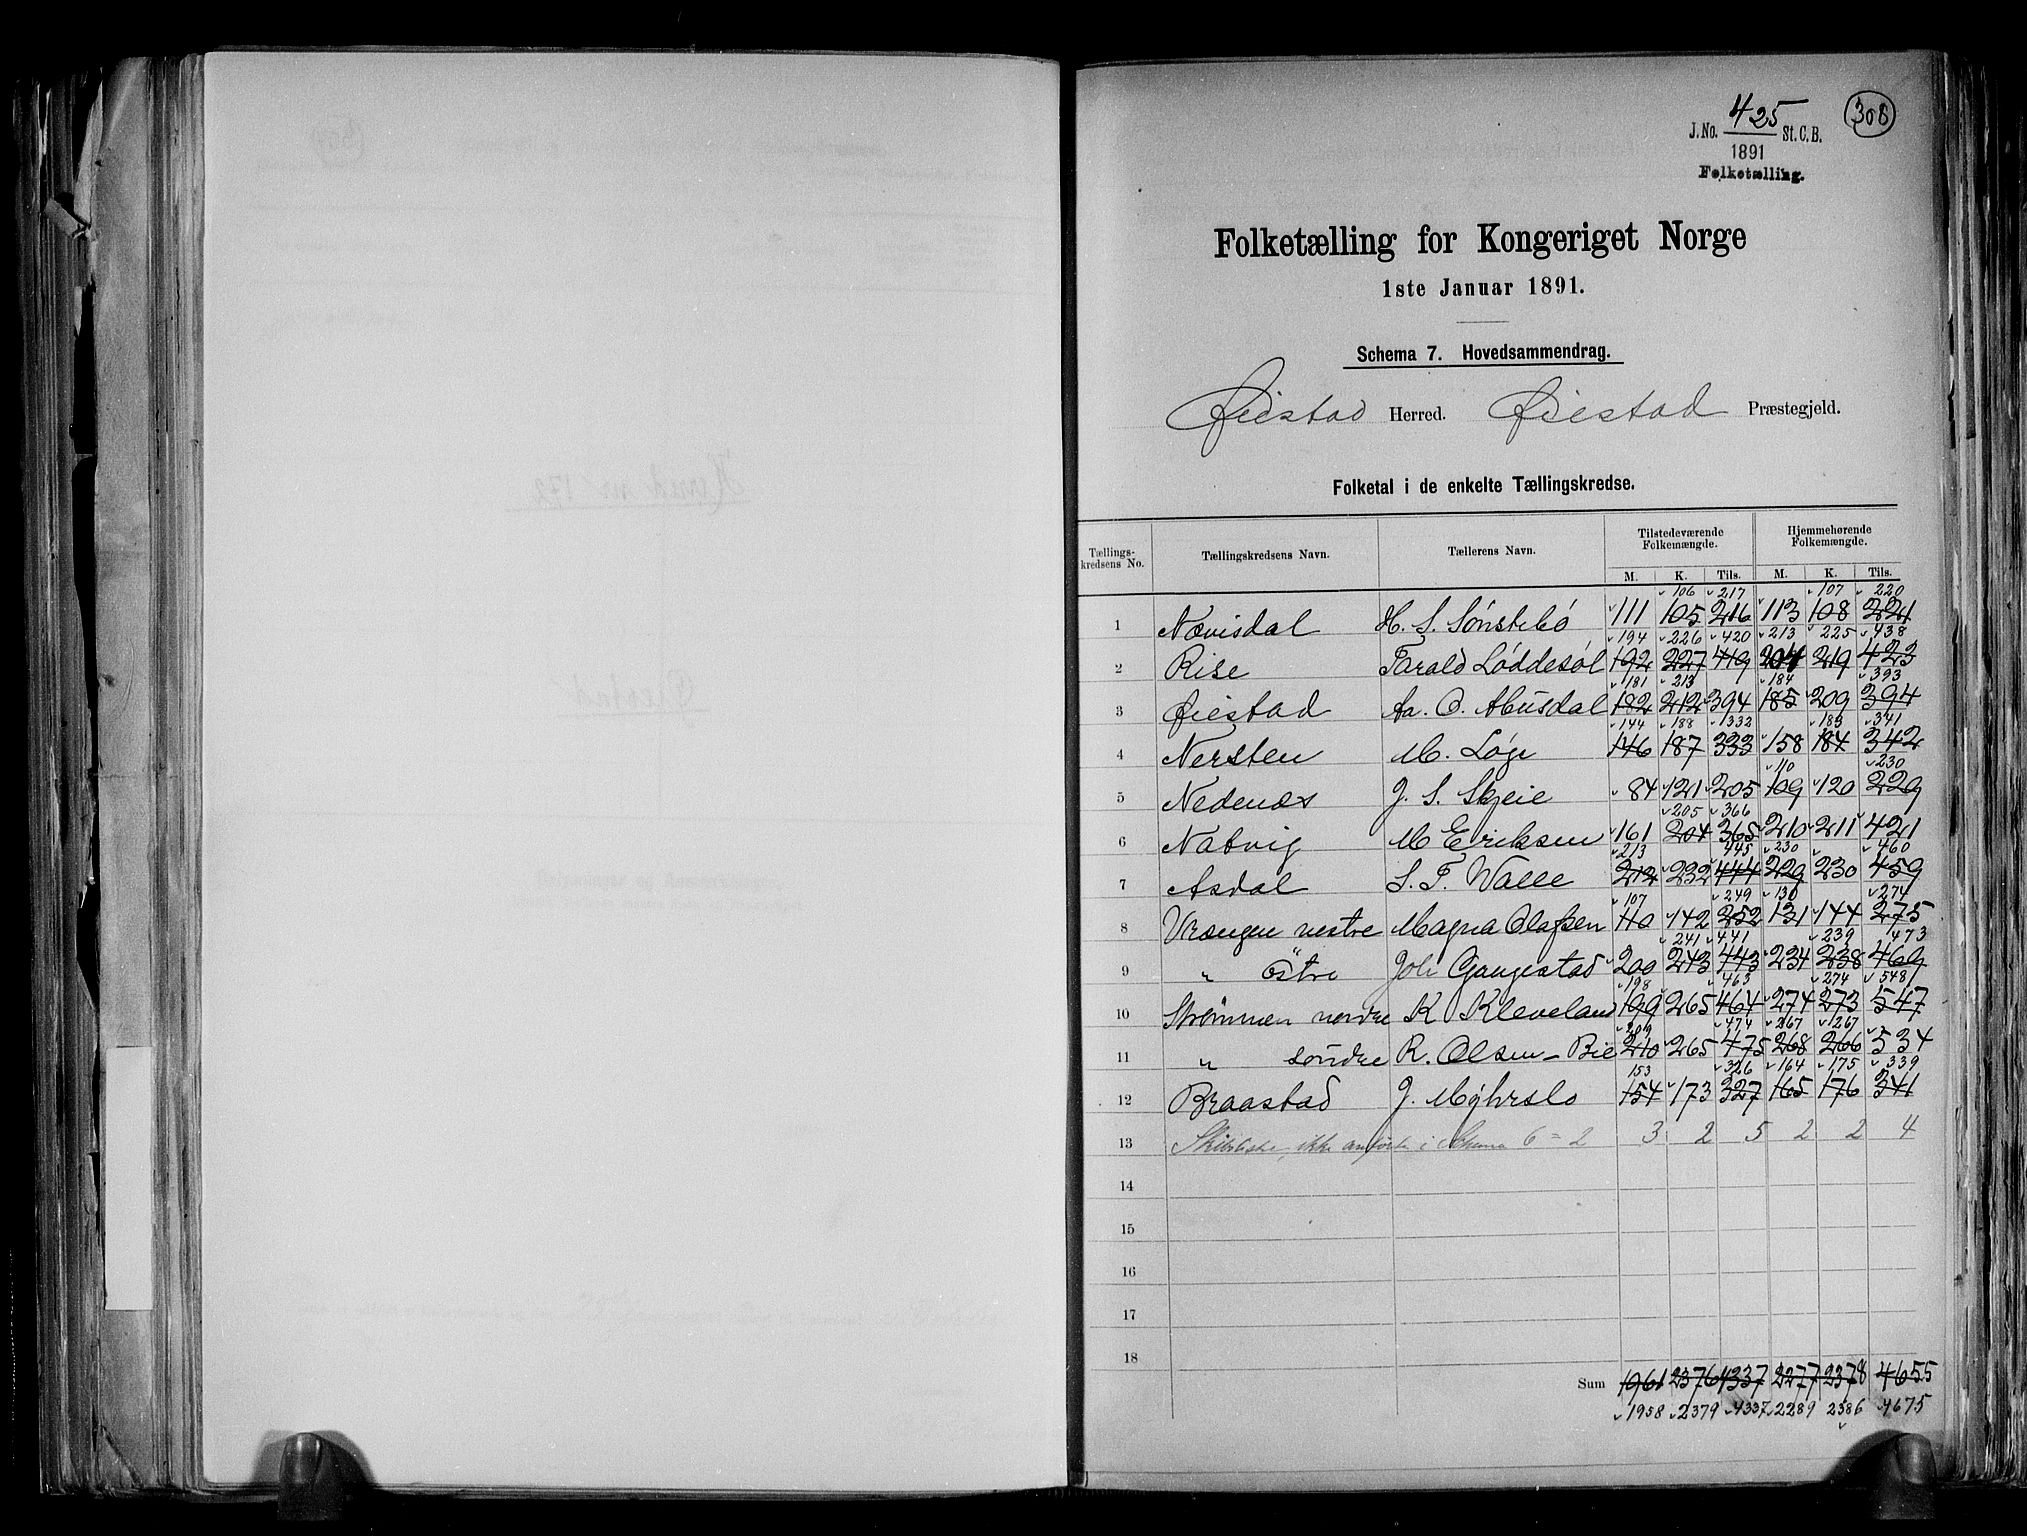 425
308
J. No. St. C. B.
1891
Folketælling.
Folketælling for Kongeriget Norge
1ste Januar 1891.
Schema 7. Hovedsammendrag.
Øiestad Herred. Øiestad Præstegjeld.
Folketal i de enkelte Tællingskredse.
Tilstedeværende Folkemængde. Hjemmehørende Folkemængde.
Tællings-kredsens No. Tællingskredsens Navn. Tællerens Navn.
M. K. Tils. M. K. Tils.
106 217 107 220
1 Nævisdal H. S. Sønstebø 111 105 216 113 108 221
194 226 420 213 225 438
2 Rise Tarald Løddesøl 192 227 419 204 219 423
181 213 184 393
3 Øiestad Aa. O. Ausdal 182 212 394 185 209 394
144 188 332 183 341
4 Nersten M. Løge 146 187 333 158 184 342
110 230
5 Nedenæs J. S. Skjeie 84 121 205 109 120 229
205 366
6 Natvig M Eriksen 161 204 365 210 211 421
213 445 230 460
7 Asdal S. F. Walle 212 232 444 229 230 459
107 249 130 274
8 Vrængen vestre Magna Olafsen 110 142 252 131 144 275
241 441 239 473
9 " østre Joh Gaugestad 200 243 443 234 238 469
198 463 274 548
10 Strømmen nordre K Kleveland 199 265 464 274 273 547
209 474 267 267
11 " søndre R. Olsen - Bie 210 265 475 268 266 534
153 326 164 175 339
12 Braastad J. Myhrslo 154 173 327 165 176 341
13 ikke anførte i Schema 6 = 2 3 2 5 2 2 4
14
15
16
17
18
Sum 1961 2376 4337 2277 2378 4655
1958 2379 4337 2289 2386 4675